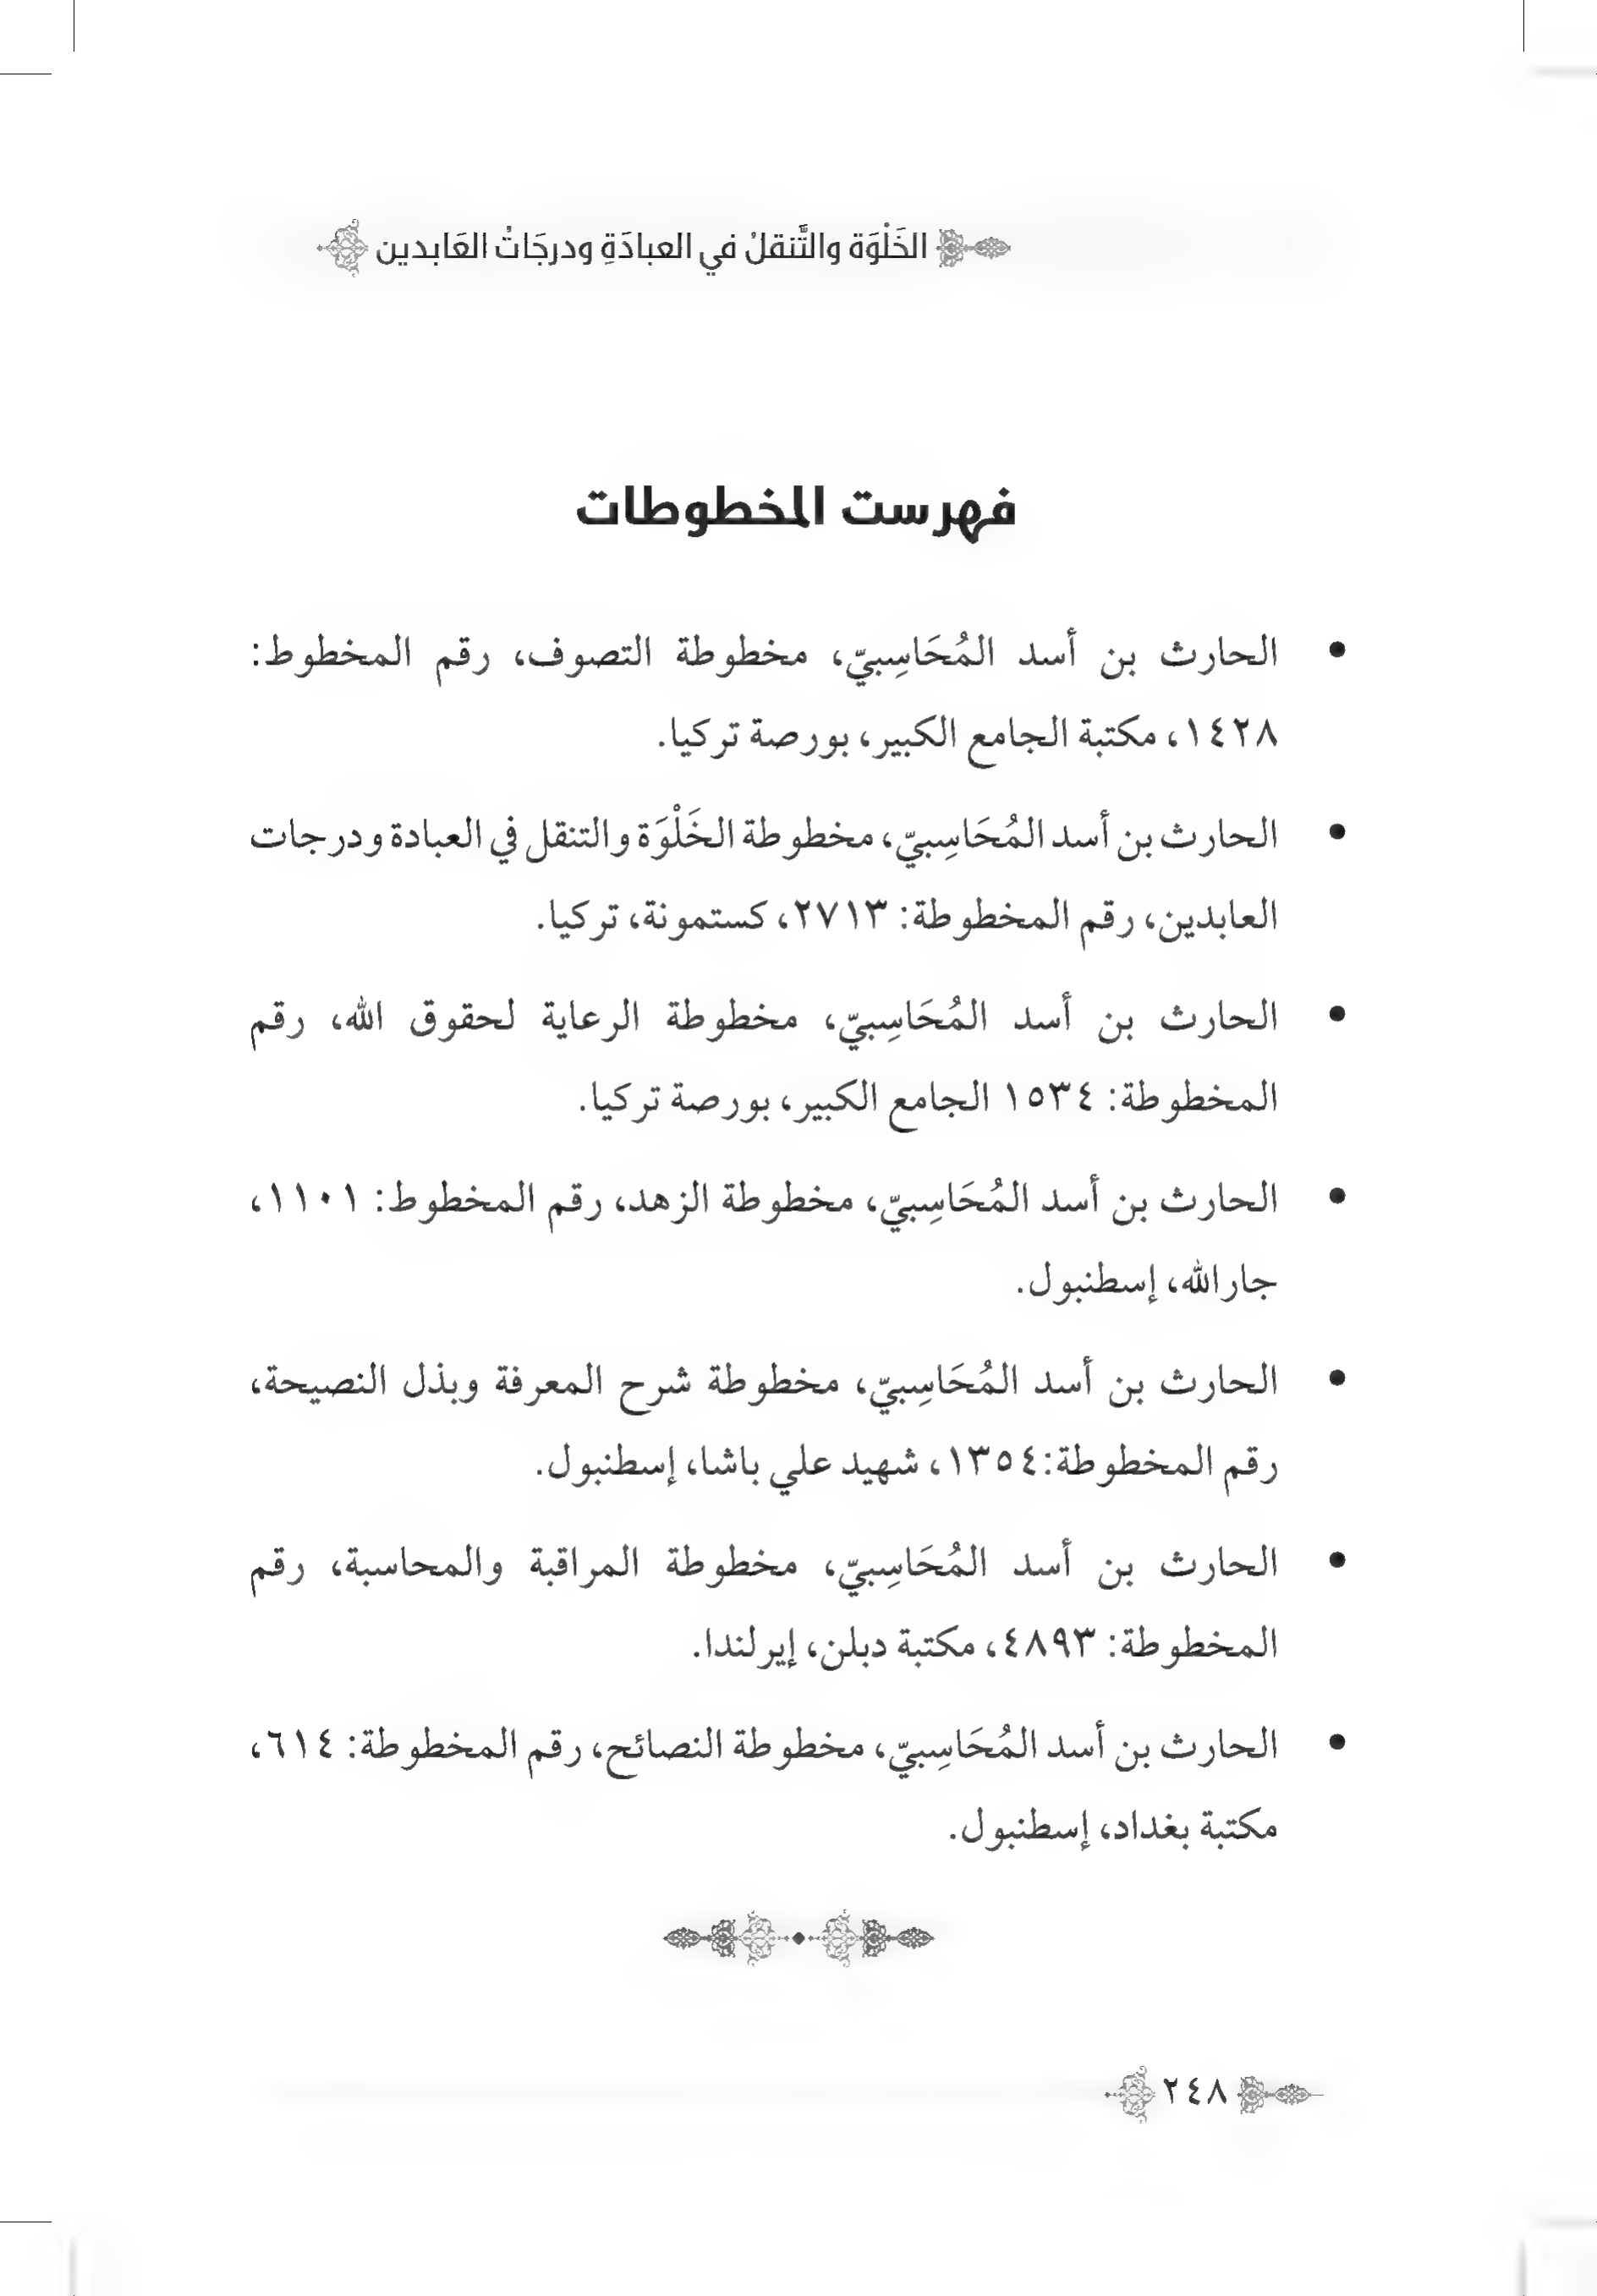 الخَلْوَة والتَّنقلُ في العبادَةِ ودرجَاتُ العَابدين
فهرست المخطوطات
• الحارث بن أسد المُحَاسِبيّ، مخطوطة التصوف، رقم المخطوط:
١٤٢٨، مكتبة الجامع الكبير، بورصة تركيا.
• الحارث بن أسد المُحَاسِبيّ، مخطوطة الخَلْوَة والتنقل في العبادة ودرجات
العابدين، رقم المخطوطة: ٢٧١٣، كستمونة، تركيا.
• الحارث بن أسد المُحَاسِبيّ، مخطوطة الرعاية لحقوق الله، رقم
المخطوطة: ١٥٣٤ الجامع الكبير، بورصة تركيا.
• الحارث بن أسد المُحَاسِبيّ، مخطوطة الزهد، رقم المخطوط: ١١٠١،
جارالله، إسطنبول.
• الحارث بن أسد المُحَاسِبيّ، مخطوطة شرح المعرفة وبذل النصيحة،
رقم المخطوطة:١٣٥٤، شهيد علي باشا، إسطنبول.
• الحارث بن أسد المُحَاسِبيّ، مخطوطة المراقبة والمحاسبة، رقم
المخطوطة: ٤٨٩٣، مكتبة دبلن، إيرلندا.
• الحارث بن أسد المُحَاسِبيّ، مخطوطة النصائح، رقم المخطوطة: ٦١٤،
مكتبة بغداد، إسطنبول.
٢٤٨